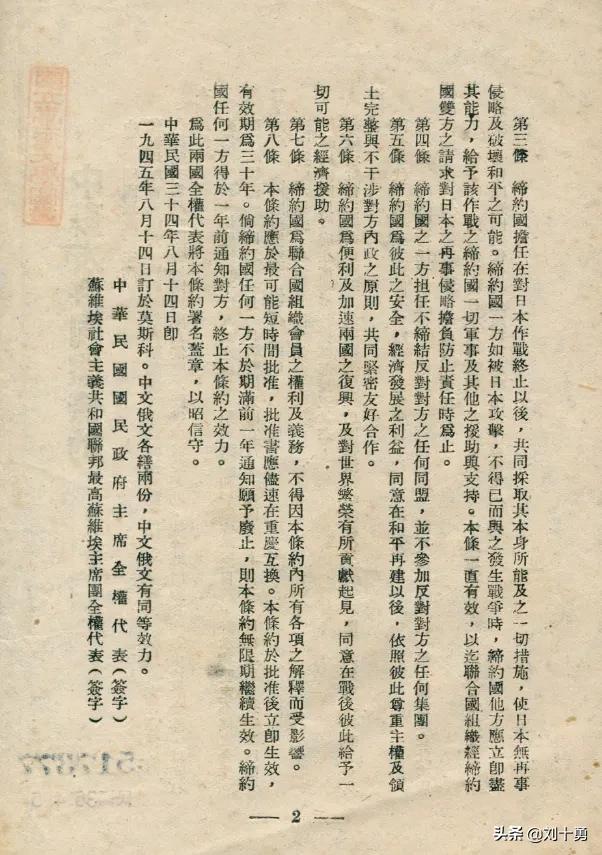 第三條　締約國擔任在對日本作戰終止以後，共同採取其本身所能及之一切措施，使日本無再事
侵略及破壞和平之可能。締約國一方如被日本攻擊，不得已而與之發生戰爭時，締約國他方應立卽盡
其能力，給予該作戰之締約國一切軍事及其他之援助與支持。本條一直有效，以迄聯合國組織經締約
國雙方之請求對日本之再事侵略擔負防止責任時爲止。
第四條　締約國之一方担任不締結反對對方之任何同盟，並不參加反對對方之任何集團。
第五條　締約國爲彼此之安全，經濟發展之利益，同意在和平再建以後，依照彼此尊重主權及領
土完整與不干涉對方內政之原則，共同緊密友好合作。
第六條　締約國爲便利及加速兩國之復興，及對世界繁榮有所貢獻起見，同意在戰後彼此給予一
切可能之經濟援助。
第七條　締約國爲聯合國組織會員之權利及義務，不得因本條約內所有各項之解釋而受影響。
第八條　本條約應於最可能短時間批准，批准書應儘速在重慶互換。本條約於批准後立卽生效，
有效期爲三十年。倘締約國任何一方不於期滿前一年通知願予廢止，則本條約無限期繼續生效。締約
國任何一方得於一年前通知對方，終止本條約之效力。
爲此兩國全權代表將本條約署名蓋章，以昭信守。
中華民國三十四年八月十四日卽
一九四五年八月十四日訂於莫斯科。中文俄文各繕兩份，中文俄文有同等效力。
中華民國國民政府主席全權代表（簽字）
蘇維埃社會主義共和國聯邦最高蘇維埃主席團全權代表（簽字）
— 2 —
头条 @刘十勇